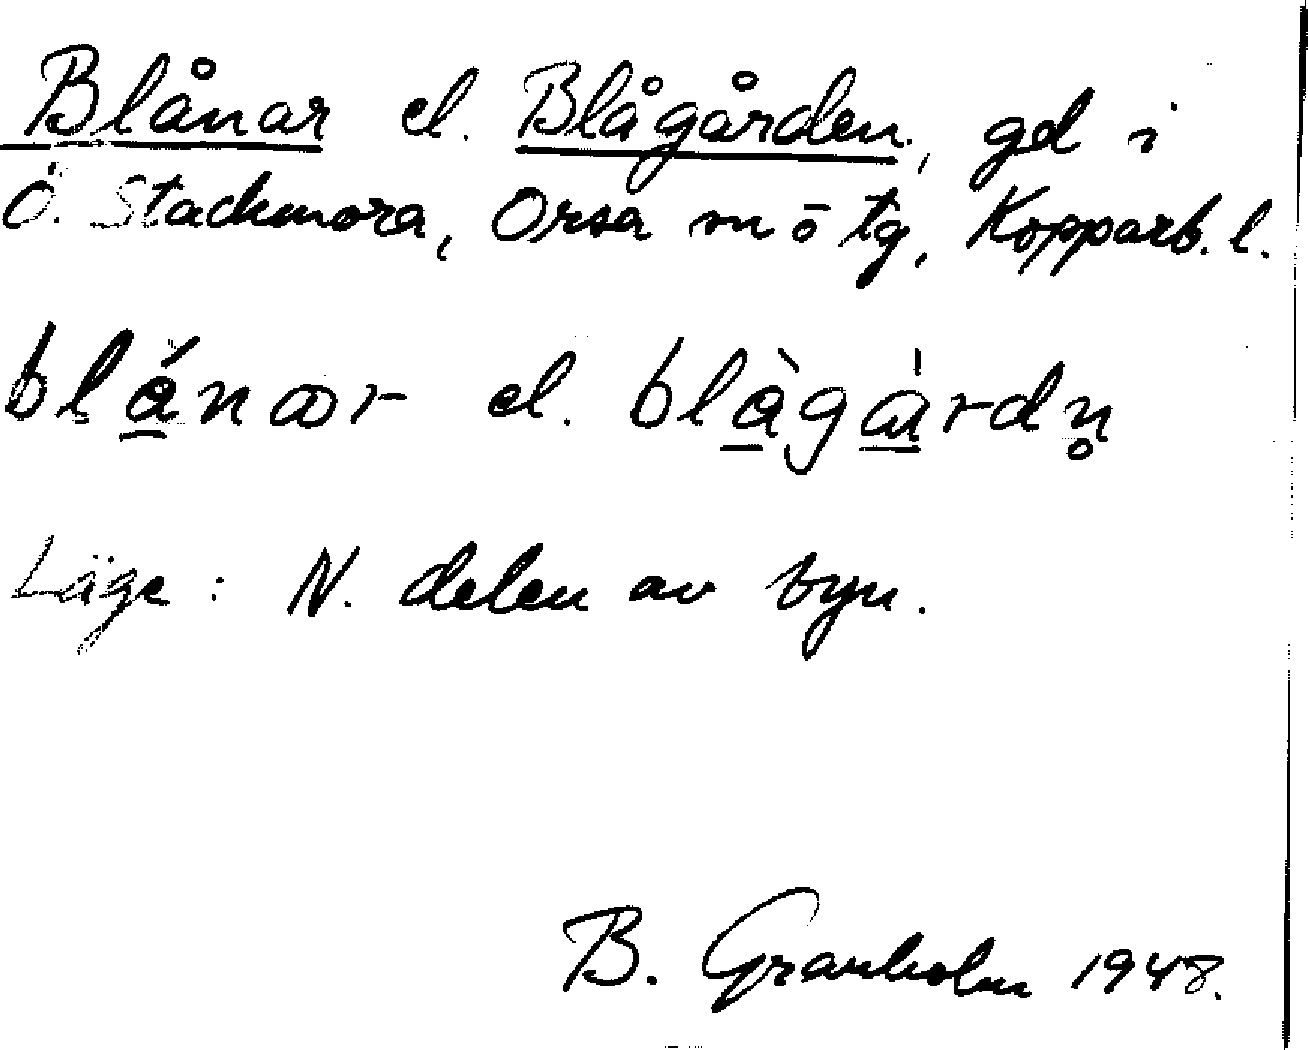 Blånar el. Blågården, gd i
Ö. Stackmora, Orsa sn o tg, Kopparb. l.
blánar el. blàgàrdn̥
Läge: N. delen av byn.
B. Granholm 1948.